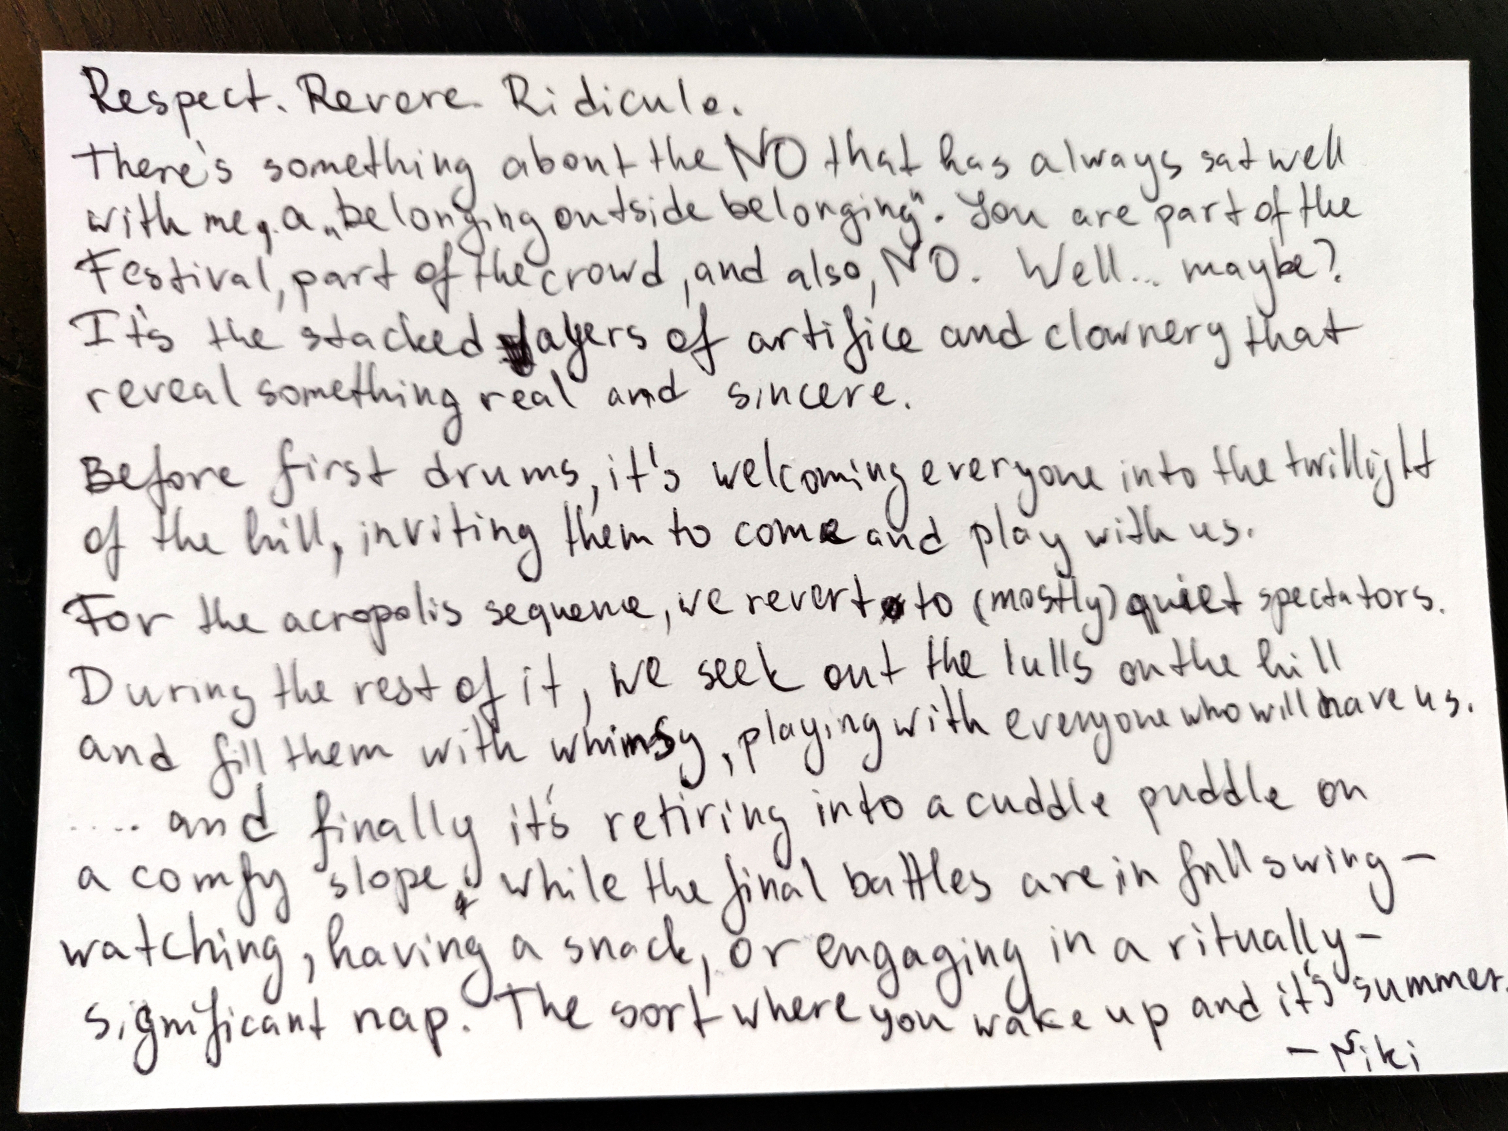 Respect. Revere. Ridicule.
There's something about the NO that has always sat well
with me, a „belonging outside belonging". You are part of the
Festival, part of the crowd, and also, NO. Well... maybe?
It's the stacked layers of artifice and clownery that
reveal something real and sincere.
Before first drums, it's welcoming everyone into the twillight
of the hill, inviting them to come and play with us.
For the acropolis sequence, we revert to (mostly) quiet spectators.
During the rest of it, we seek out the lulls on the hill
and fill them with whimsy, playing with everyone who will have us.
.... and finally it's retiring into a cuddle puddle on
a comfy slope, while the final battles are in full swing –
watching, having a snack, or engaging in a ritually-
significant nap. The sort where you wake up and it's summer.
– Niki